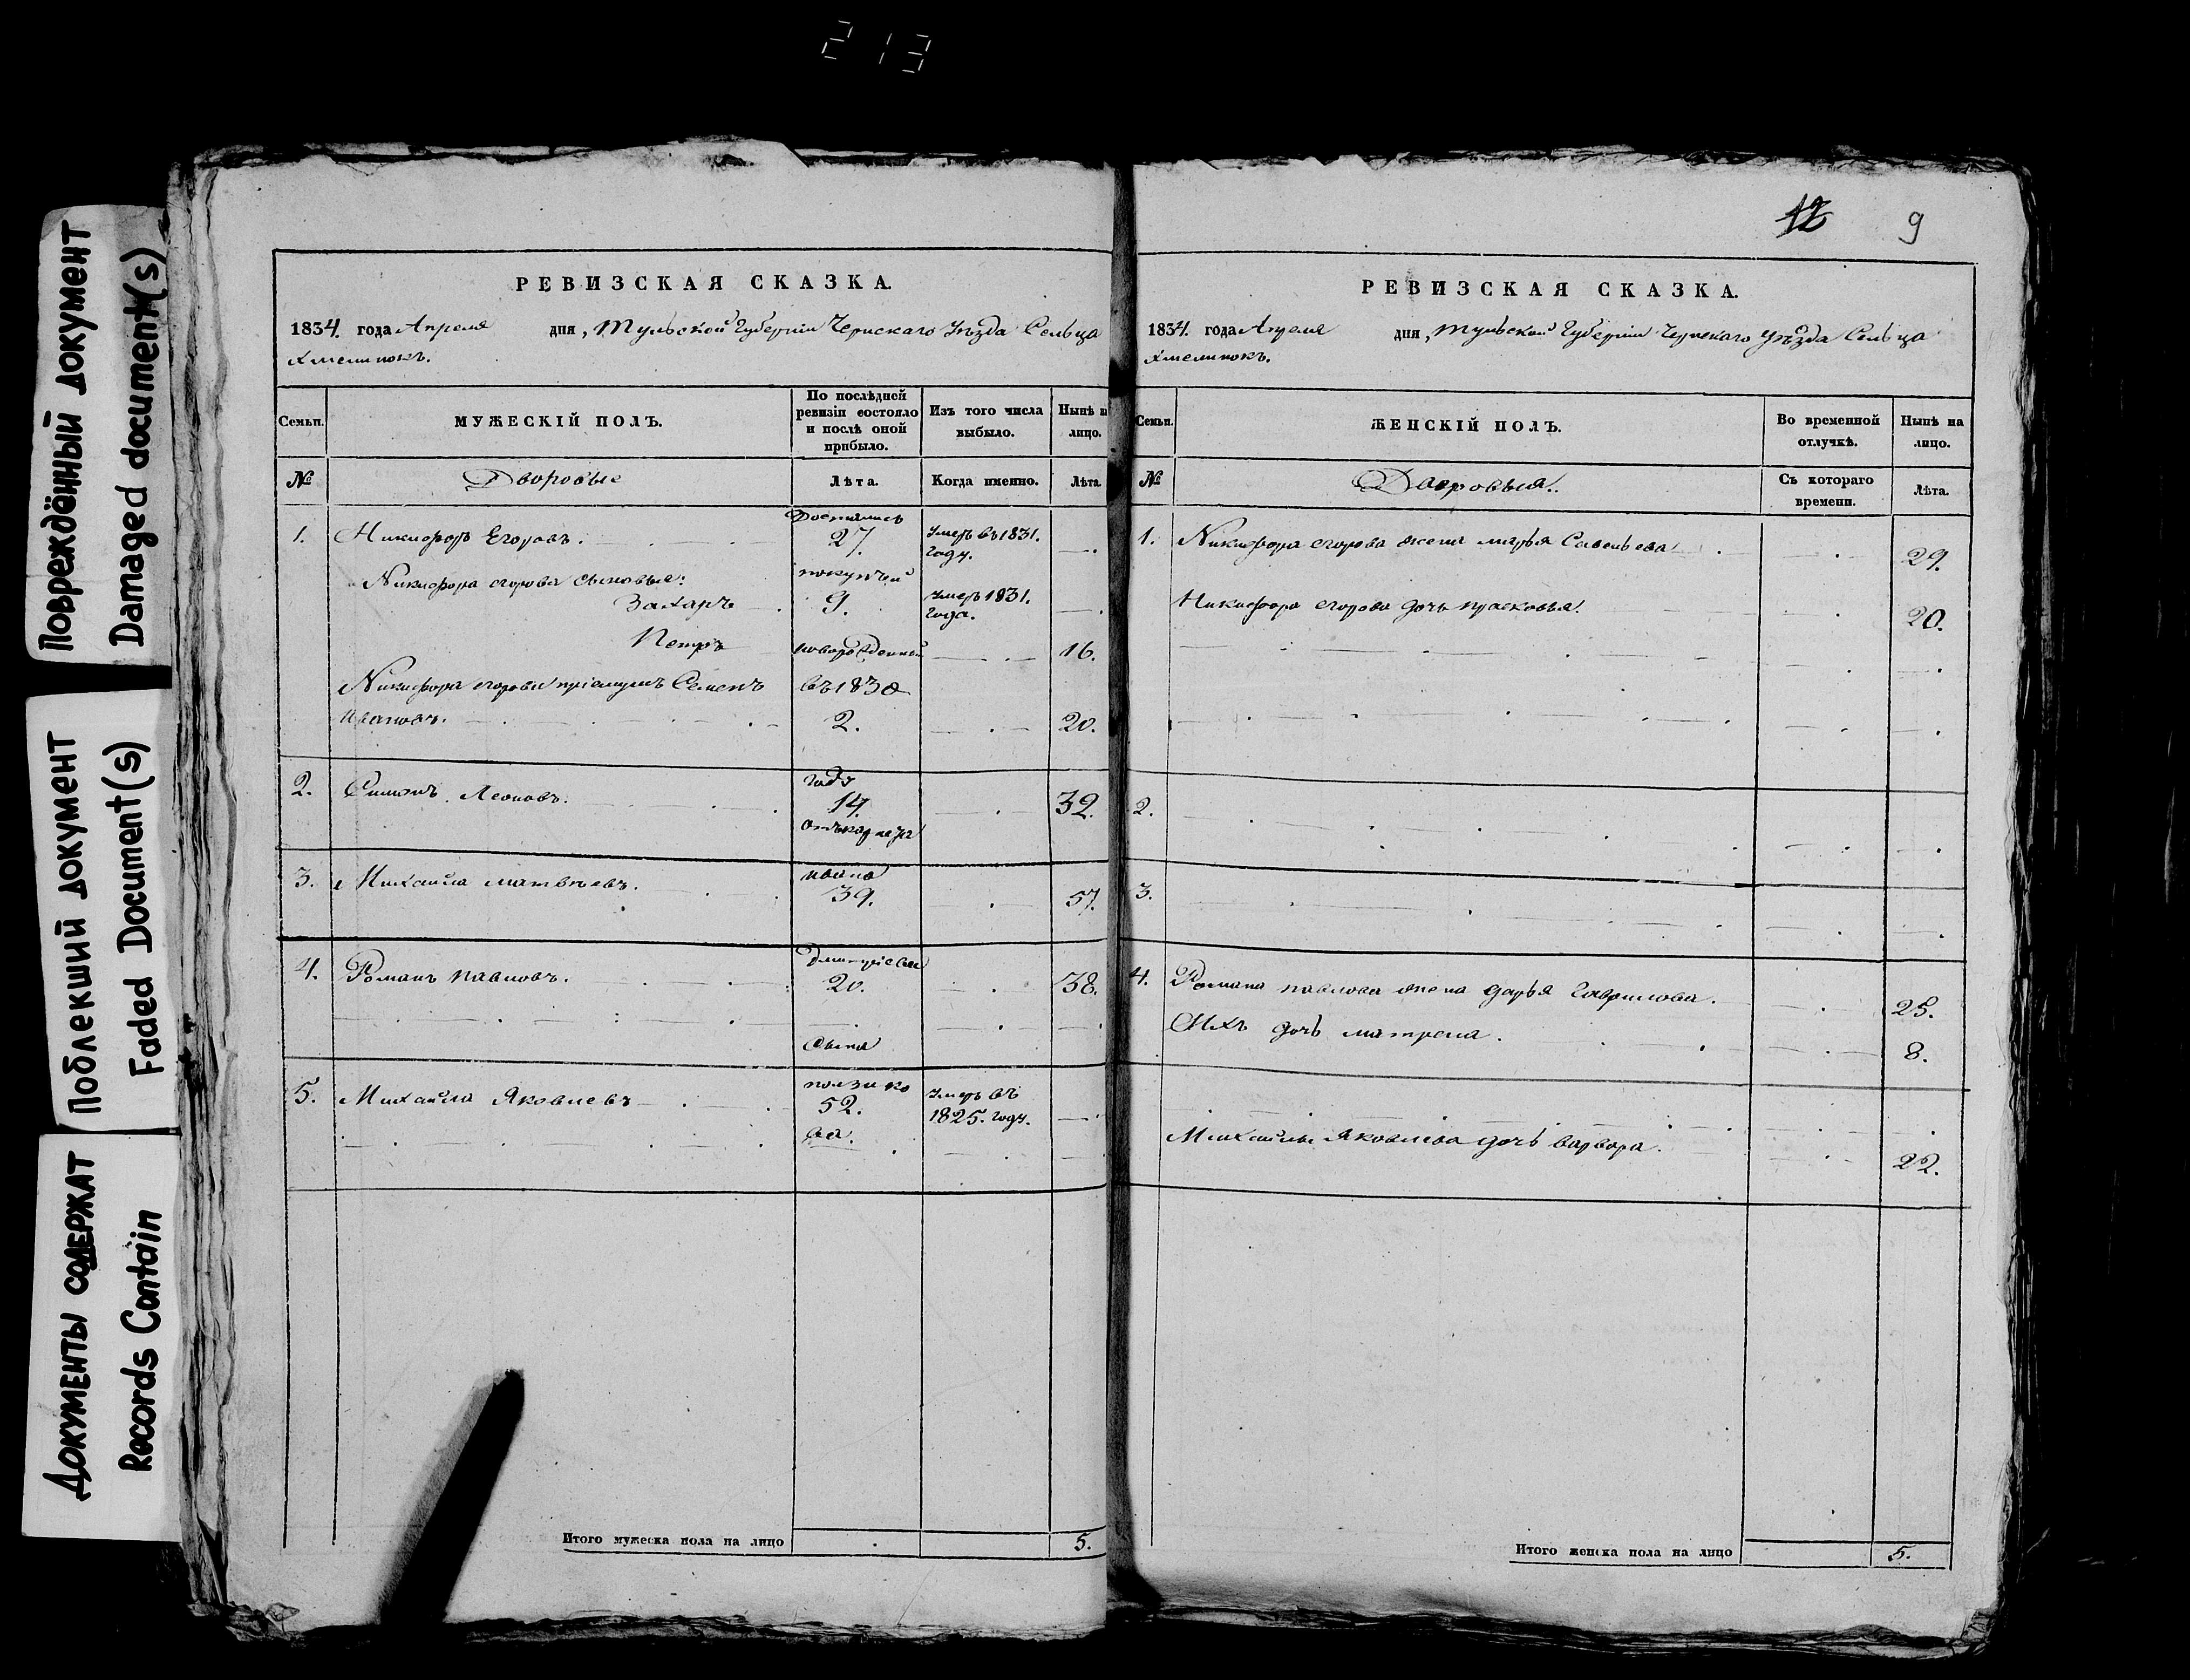 213
Повреждённый документ
Damaged document(s)
Поблекший документ
Faded Document(s)
Документы содержат
Records Contain
РЕВИЗСКАЯ СКАЗКА.
1834. года Апреля дня, Тульской Губернии Чернскаго Уѣзда Сельца
Хмелинокъ.
Семьи.
МУЖЕСКІЙ ПОЛЪ.
По послѣдней
ревизіи состояло
и послѣ оной
прибыло.
Изъ того числа
выбыло.
Нынѣ на
лицо.
№
Дворовые
Лѣта.
Когда именно.
Лѣта.
1. Никифоръ Егоровъ. Достались 27. Умеръ въ 1831. году.
Никифора егорова сыновья: покупкой
Захаръ 9. Умеръ 1831. года.
Петръ новорожденный 16.
Никифора егорова пріемышъ Семенъ въ 1830
Ивановъ. 2. 20.
году
2. Симонъ Леоновъ. 14. 32.
отъ корнета
3. Михайла матвѣевъ. ивана 39. 57.
4. Романъ павловъ. Дмитріева 20. 38.
сына
5. Михайла Яковлевъ ползико 52. Умеръ въ 1825. году.
ва.
Итого мужеска пола на лицо 5.
12 9
РЕВИЗСКАЯ СКАЗКА.
1834. года Апреля дня, Тульской Губернии Чернскаго Уѣзда Сельца
Хмелинокъ.
Семьи.
ЖЕНСКІЙ ПОЛЪ.
Во временной
отлучкѣ.
Нынѣ на
лицо.
№
Дворовыя.
Съ котораго
времени.
Лѣта.
1. Никифора егорова жена марья Савельева 29.
Никифора егорова дочь прасковья. 20.
2.
3.
4. Романа павлова жена дарья Гаврилова. 25.
Ихъ дочь матрена. 8.
Михайлы Яковлева дочь варвара. 22.
Итого женска пола на лицо 5.